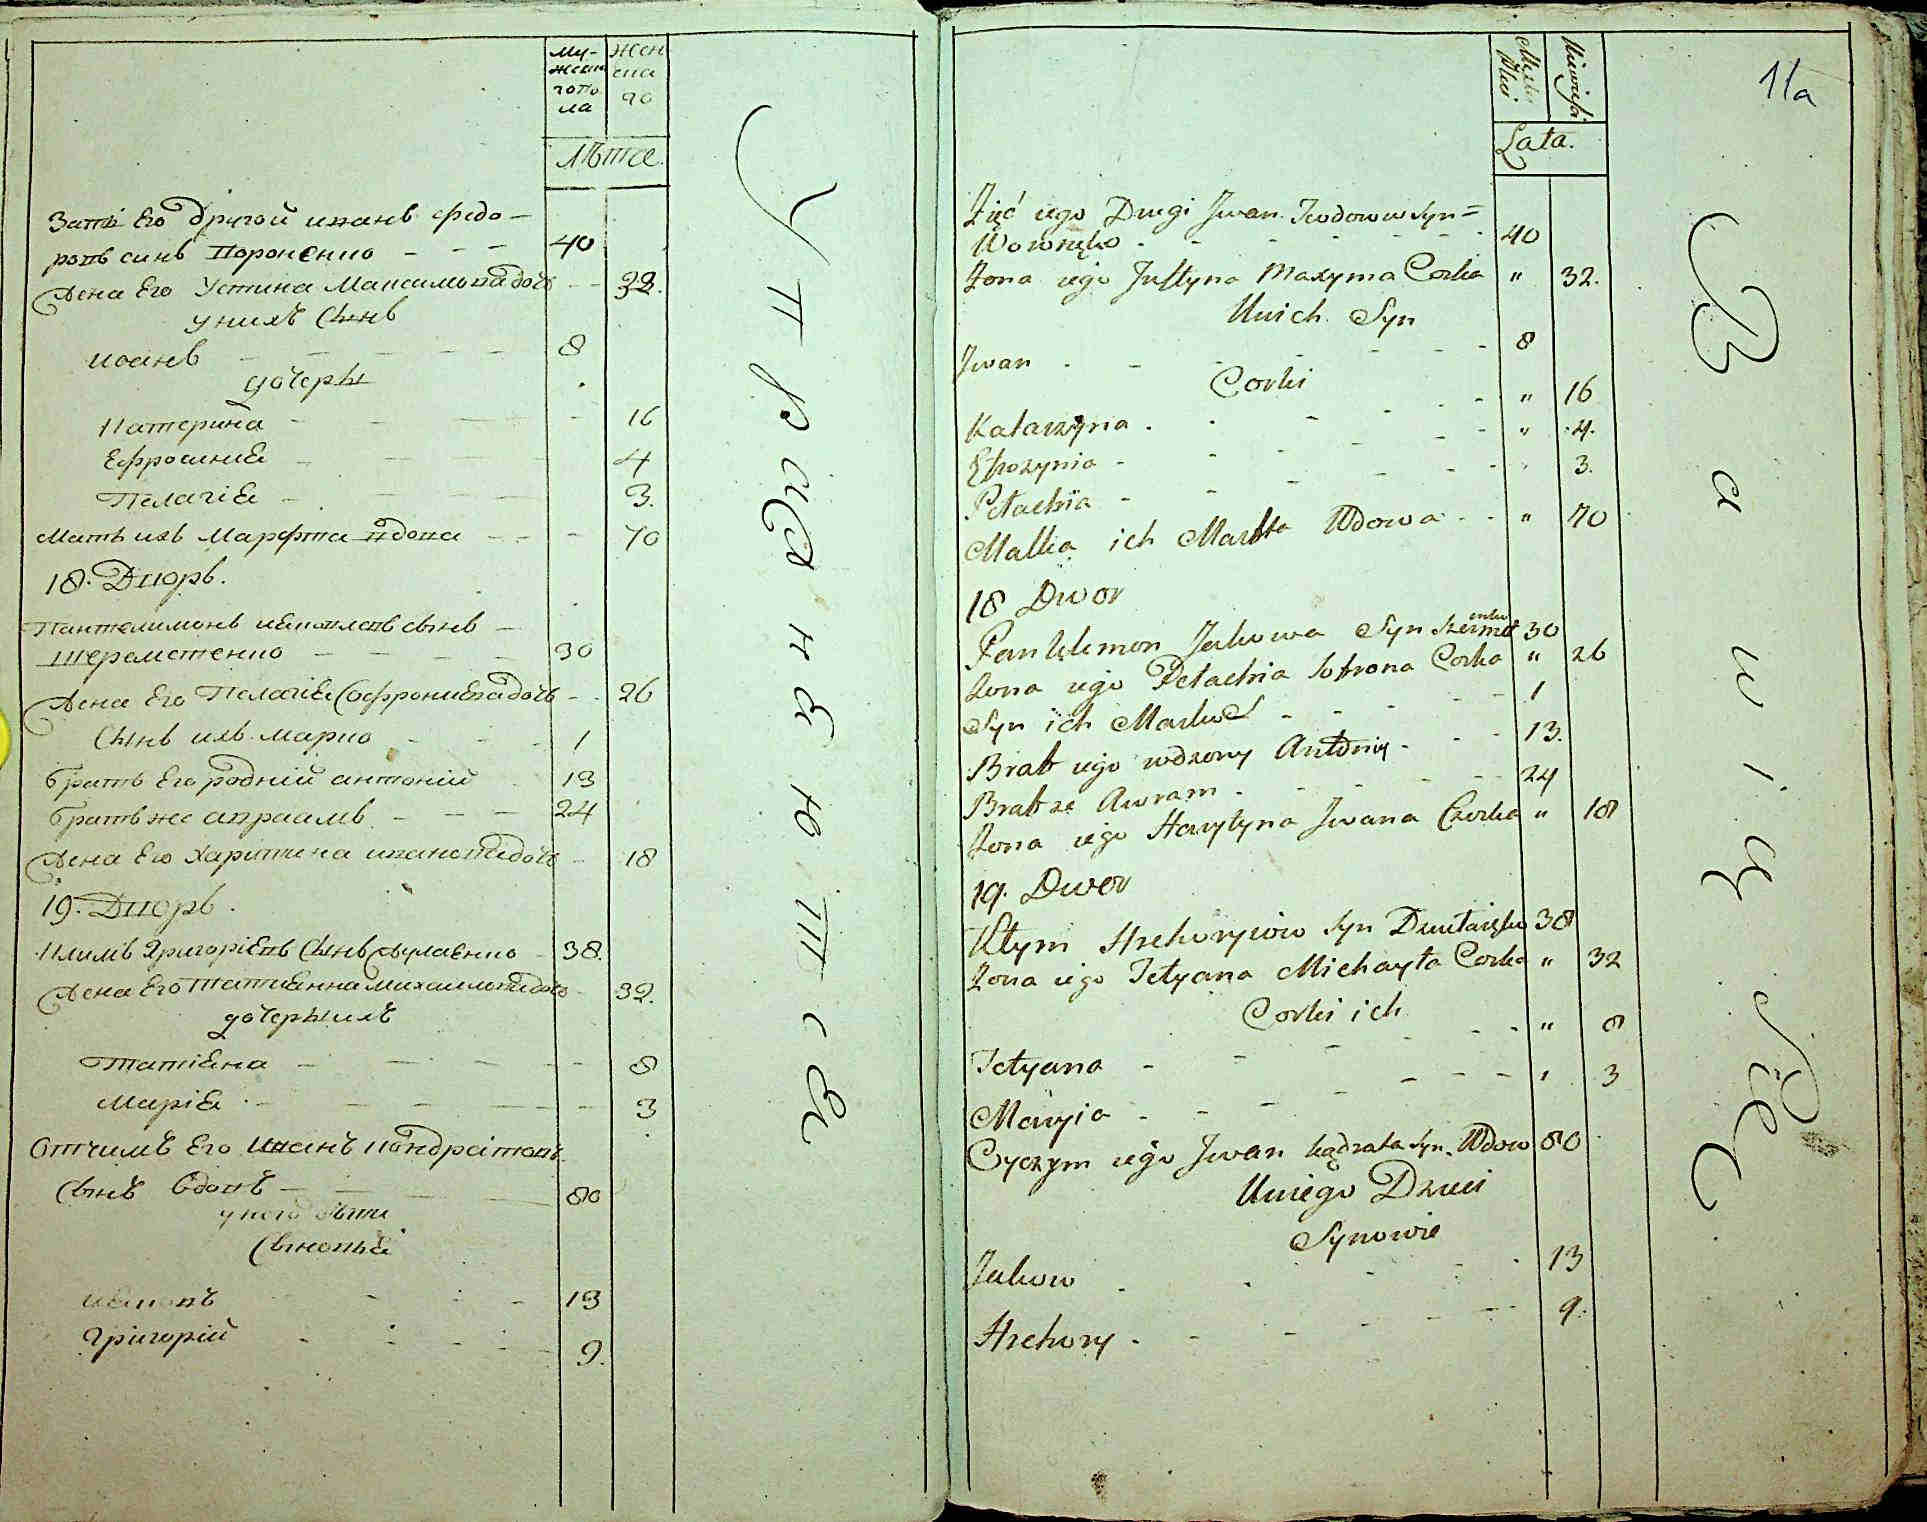 му-
жеска
гопо
ла
жен
ска
го
лѣта
Зять Его другой иванъ Ѳедо-
ровъ синъ Вороненко 40
Жена Его Устина Максимова дочь 32.
у нихъ Сынъ
иоанъ 8
дочеры
Катерина 16
Ефросиния 4
Пелагія 3.
Мать ихъ Марфта вдова 70
18. Дворъ.
Пантелимонъ иаковлевъ сынъ
Шереметенко 30
Жена Его Пелагія Софрониева дочь 26
Сынъ ихъ марко 1
братъ Его родній антоній 13
братъ же авраамъ 24
Жена Его Харитина иванова дочь 18
19. Дворъ.
Климъ Григоріевъ Сынъ 38.
Жена Его Татиянна михаилова дочь 32.
дочеры ихъ
Татіяна 8
Марія 3
Отчимъ Его Иванъ кондратовъ
Сынъ вдовъ 80
у него дѣти
Сыновья
иаковъ 13
Григорій 9.
У праздненются
11a
Męzka
Płci
Niewiescia
Lata.
Zięć iego Drugi Jwan Teodorow Syn=
Woronęko 40
Żona iego Justyna Maxyma Corka " 32.
U nich Syn
Jwan 8
Corki
Katarzyna " 16
Efrozynia " 4.
Pelachia 3.
Matka ich Marfta Wdowa " 70
18 Dwor
Pantelimon Jakowa Syn Szeremetenko 30
Żona iego Pelachia Sofrona Corka " 26
Syn ich Marko 1
Brat iego rodzony Antoniy 13.
Brat ze Awram 24
Żona iego Harytyna Jwana Corka " 18
19. Dwor
Kłym Hrehorÿiow Syn 38
Żona iego Tetyana Michayła Corka " 32
Corki ich
Tetyana " 8
Maryia 3
Oyczym iego Jwan Kądrata Syn Wdow 80
U niego Dzieci
Synowie
Jakow 13
Hrehory 9.
Bawią Się